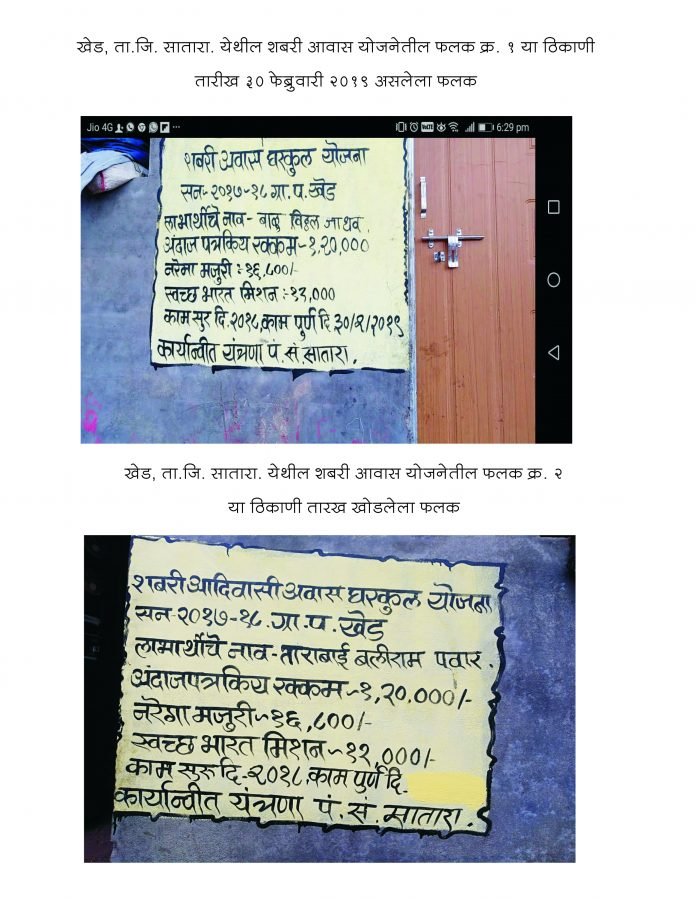 खेड, ता.जि. सातारा. येथील शबरी आवास योजनेतील फलक क्र. १ या ठिकाणी
तारीख ३० फेब्रुवारी २०१९ असलेला फलक
Jio 4G 6:29 pm
शबरी अवास घरकुल योजना
सन-२०१७-१८ ग्रा.प.खेड
लाभार्थीचे नाव - बाळू विठ्ठल जाधव.
अंदाज पत्रकिय रक्कम-१,२०,०००
नरेगा मजुरी :-१६,८००/-
स्वच्छ भारत मिशन :-१२,०००
काम सुरु दि.२०१८.काम पुर्ण दि.३०/२/२०१९
कार्यान्वीत यंत्रणा पं.सं.सातारा.
खेड, ता.जि. सातारा. येथील शबरी आवास योजनेतील फलक क्र. २
या ठिकाणी तारख खोडलेला फलक
शबरी आदिवासी अवास घरकुल योजना
सन-२०१७-१८.ग्रा.प.खेड
लाभार्थीचे नाव-ताराबाई बळीराम पवार.
अंदाजपत्रकिय रक्कम-१,२०,०००/-
नरेगा मजुरी-१६,८००/-
स्वच्छ भारत मिशन-१२,०००/-
काम सुरु दि-२०१८.काम पुर्ण दि.
कार्यान्वीत यंत्रणा पं.सं.सातारा.